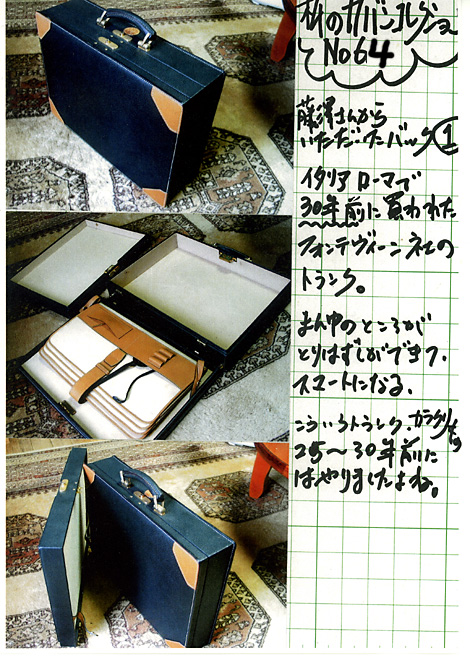 私のカバンコレクション
No64
藤澤さんから
いただいたバック①
イタリア ローマで
30年前に買われた
フォンテヴィーンネ社の
トランク。
まん中のところが
とりはずしができて、
スマートになる。
こういうトランク、カラクリもの
25〜30年前に
はやりましたよね。